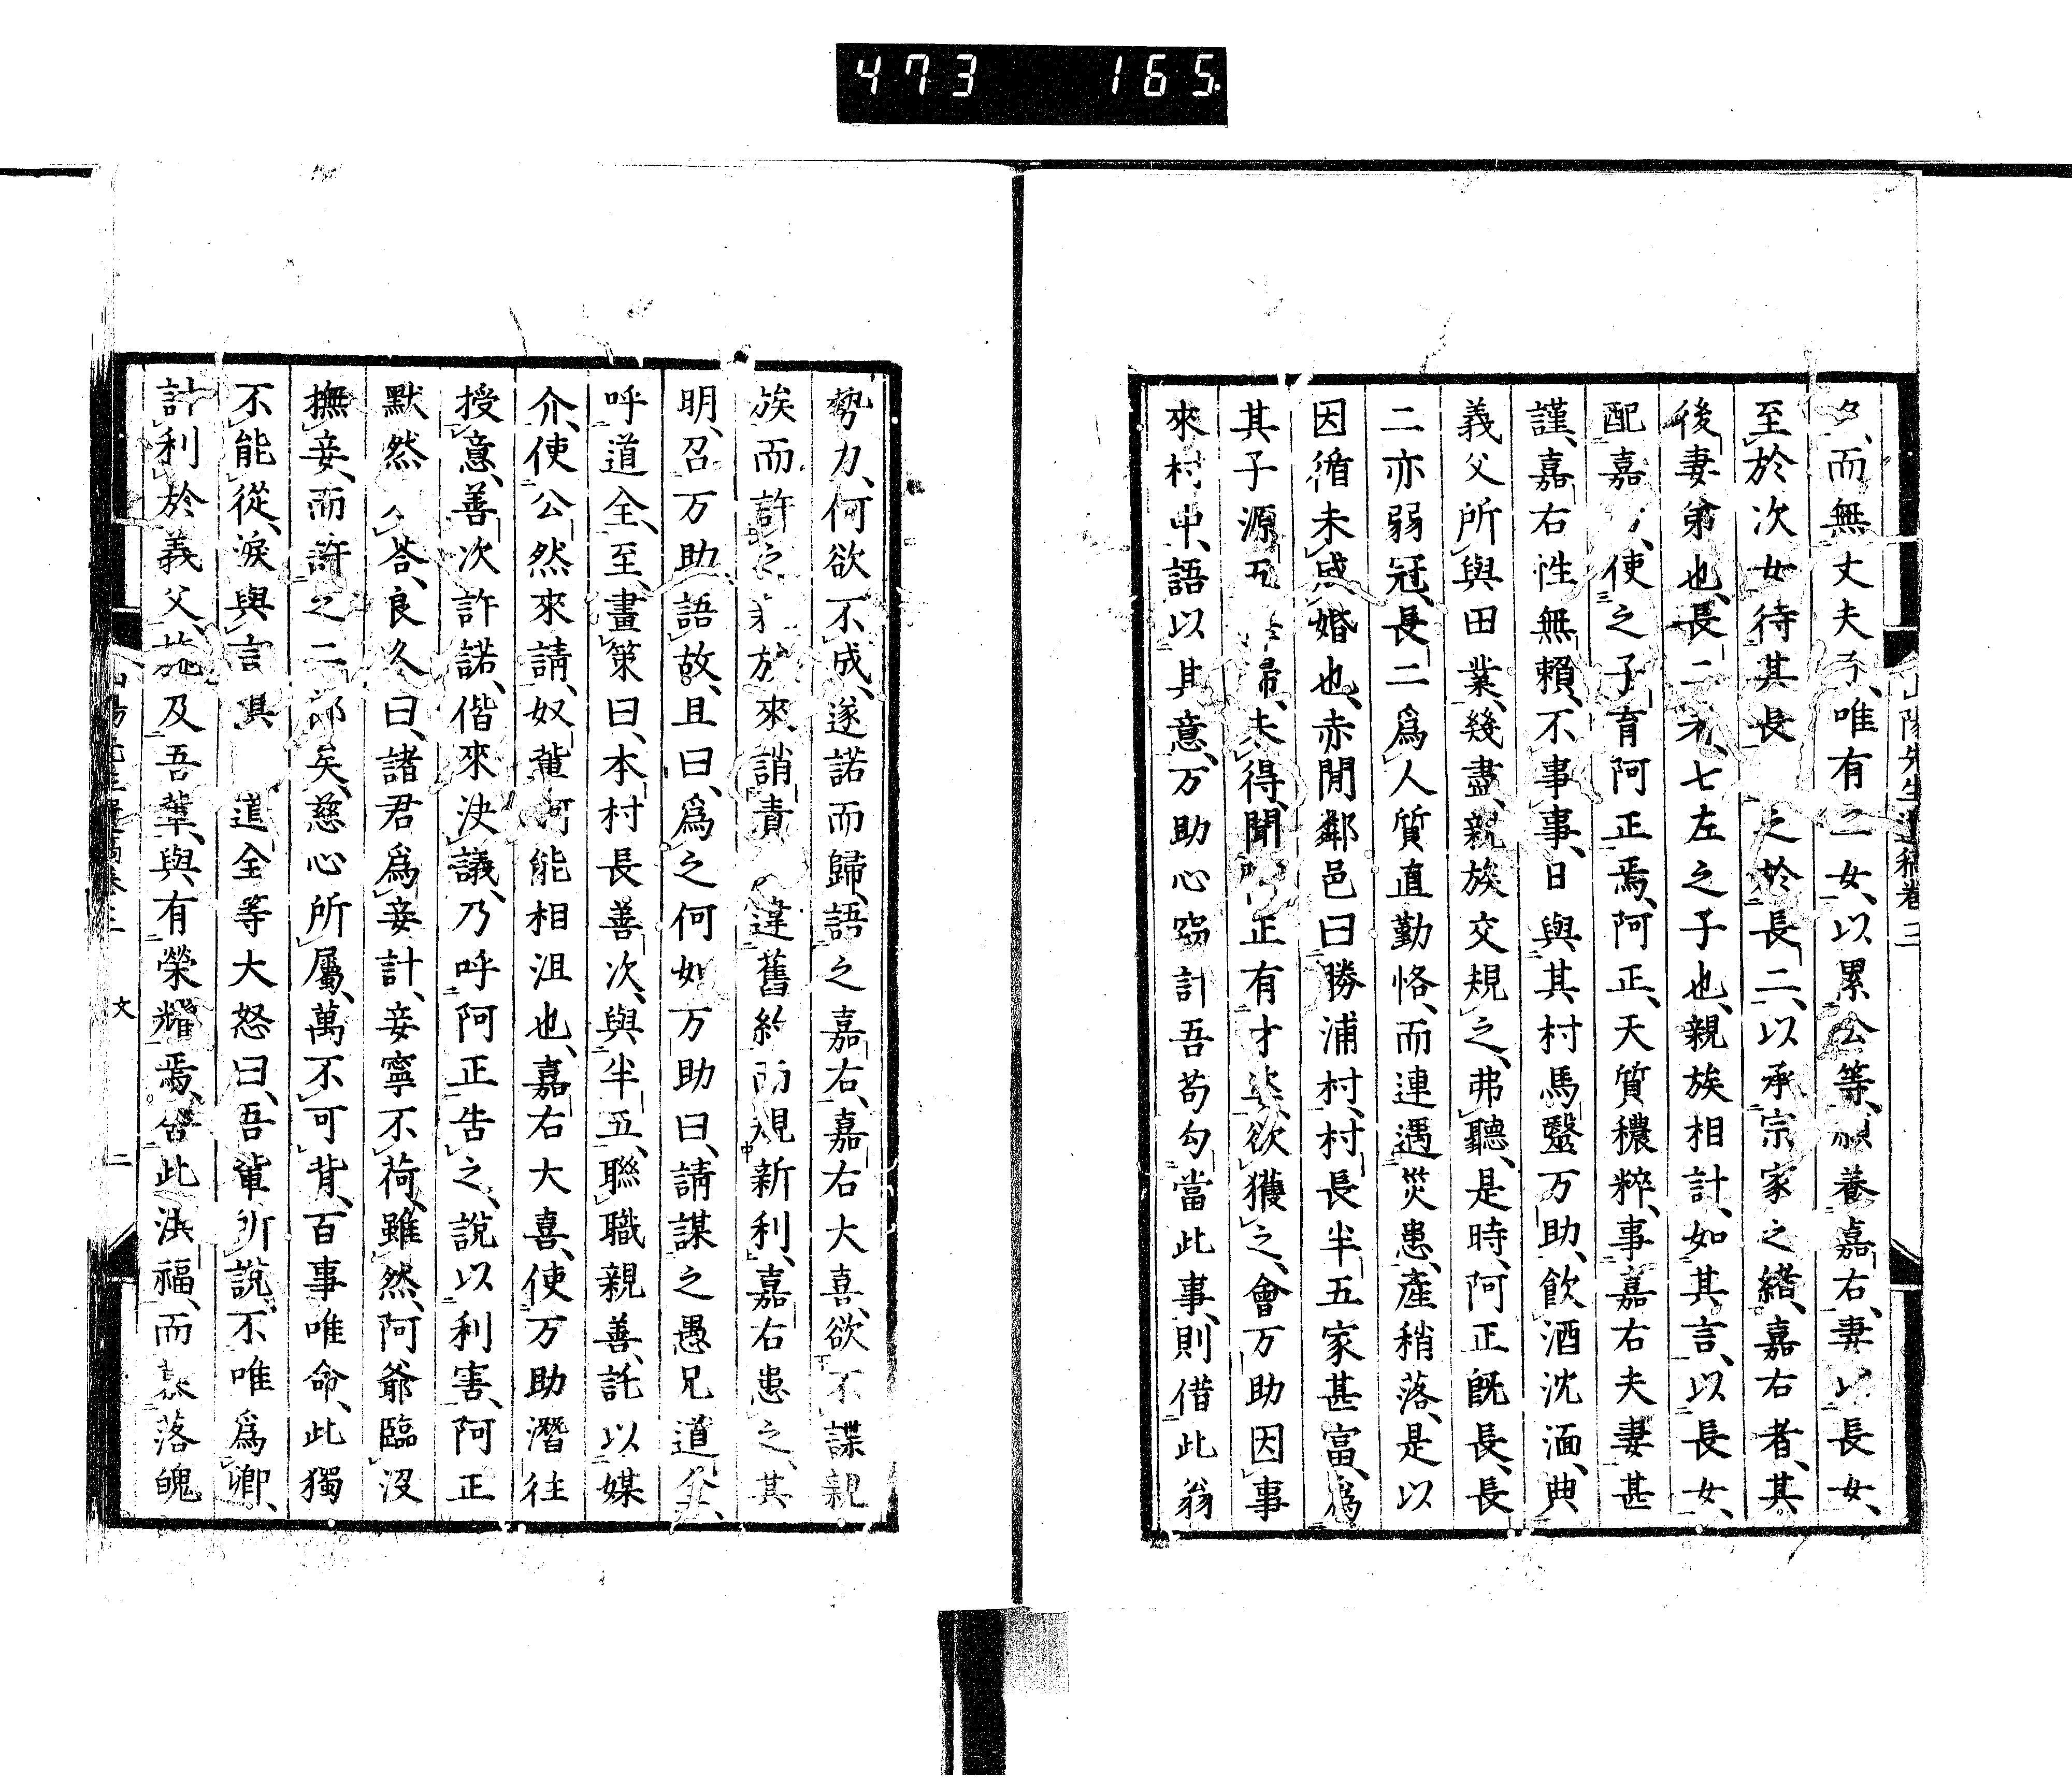 473 165
山陽先生遺稿卷三
夕、而無丈夫子、唯有二女、以累公等、願養嘉右、妻以長女、
至於次女待其長 之於長二、以承宗家之緒、嘉右者、其
後妻弟也、長二 七左之子也、親族相計、如其言、以長女、
配嘉 使之子育阿正焉、阿正、天質穠粹、事嘉右夫妻甚
謹、嘉右性無賴、不事事、日與其村馬毉万助、飲酒沈湎、典
義父所與田業、幾盡、親族交規之、弗聽、是時、阿正既長、長
二亦弱冠、長二為人質直勤恪、而連遇災患、產稍落、是以
因循未成婚也、赤間鄰邑曰勝浦村、村長半五家甚富、為
其子源五 婦、未得、聞阿正有才姿、欲獲之、會万助因事
來村中、語以其意、万助心竊計吾苟勾當此事、則借此翁
勢力、何欲不成、遂諾而歸、語之嘉右、嘉右大喜、欲不諜親
族而許之 族來誚責 違舊約而規新利、嘉右患之、其
明、召万助語故、且曰、為之何如、万助曰、請謀之愚兄道全、
呼道全、至、畫策曰、本村長善次、與半五、聯職親善、託以媒
介、使公然來請、奴輩何能相沮也、嘉右大喜、使万助潛往
授意、善次許諾、偕來決議、乃呼阿正告之、說以利害、阿正
默然 答、良久曰、諸君為妾計、妾寧不荷、雖然、阿爺臨沒
撫妾、而許之二郎矣、慈心所屬、萬不可背、百事唯命、此獨
不能從、淚與言俱 道全等大怒曰、吾輩所說、不唯為卿、
計利於義父、施及吾輩、與有榮耀焉、舍此洪福、而 落魄
山陽先生遺稿卷三 文 二